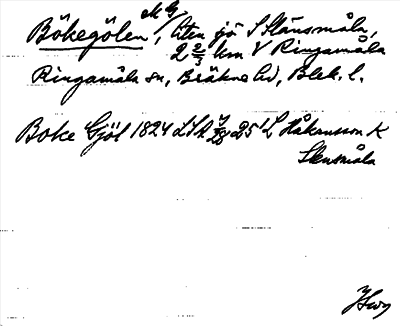 M G
Bökegölen, liten sjö S Stensmåla,
2 2/3 km V Ringamåla
Ringamåla sn, Bräkne hd, Blek. l.
Boke Gjöl 1824 LSA 25 L Håkansson K
Stensmåla